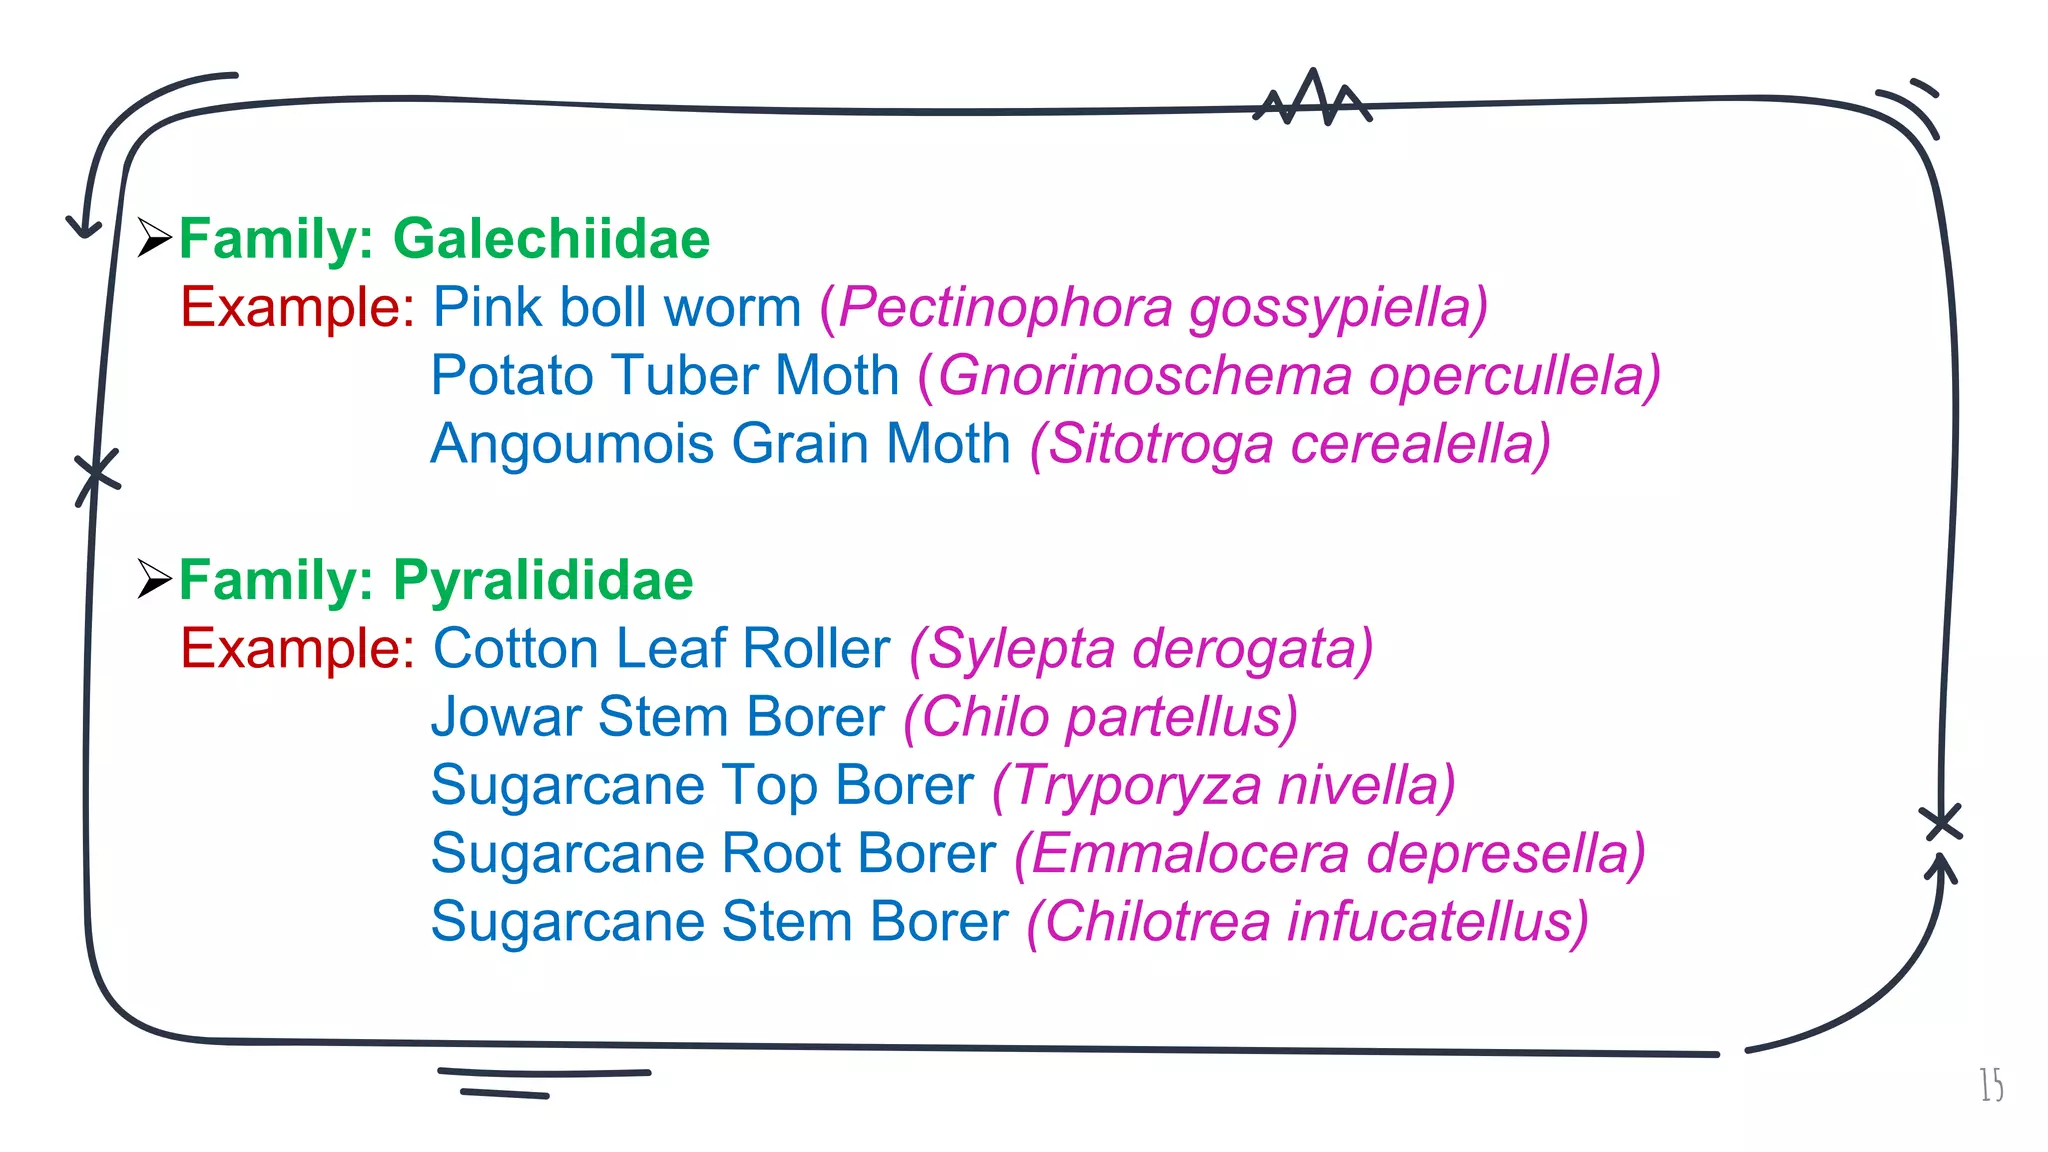 ➢Family: Galechiidae
Example: Pink boll worm (Pectinophora gossypiella)
Potato Tuber Moth (Gnorimoschema opercullela)
Angoumois Grain Moth (Sitotroga cerealella)
➢Family: Pyralididae
Example: Cotton Leaf Roller (Sylepta derogata)
Jowar Stem Borer (Chilo partellus)
Sugarcane Top Borer (Tryporyza nivella)
Sugarcane Root Borer (Emmalocera depresella)
Sugarcane Stem Borer (Chilotrea infucatellus)
15